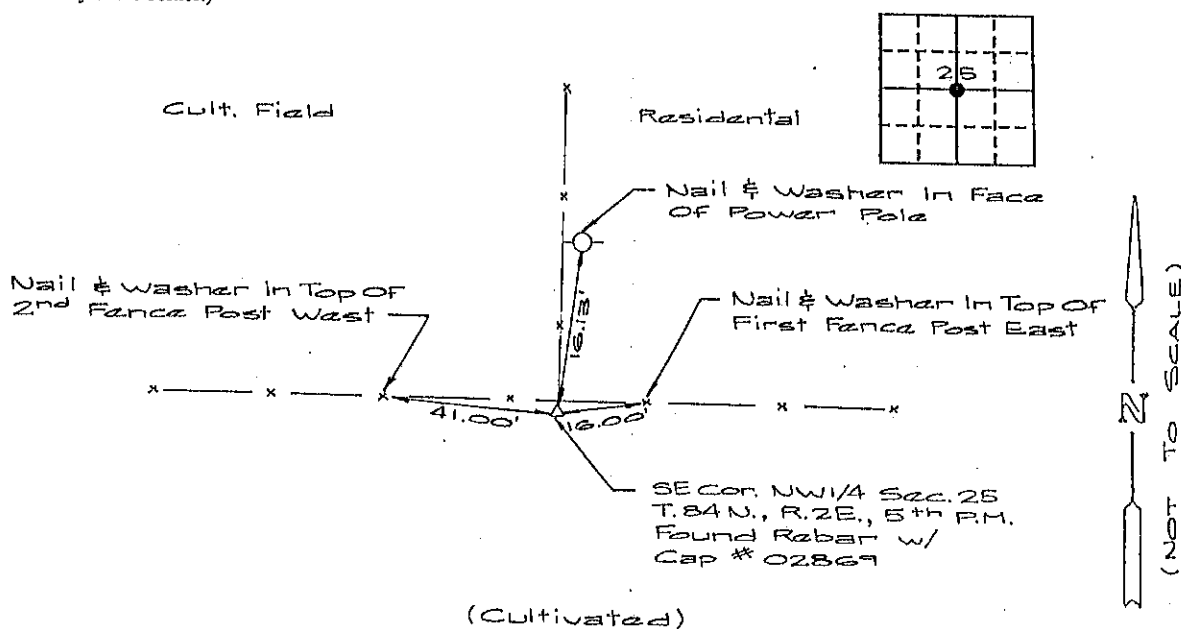 25
Cult. Field
Residental
Nail & Washer In Face
Of Power Pole
Nail & Washer In Top Of
2nd Fence Post West
Nail & Washer In Top Of
First Fence Post East
16.13'
41.00'
16.00'
SE Cor. NW1/4 Sec. 25
T. 84 N., R. 2E., 5th P.M.
Found Rebar w/
Cap # 02869
N
(NOT TO SCALE)
(Cultivated)